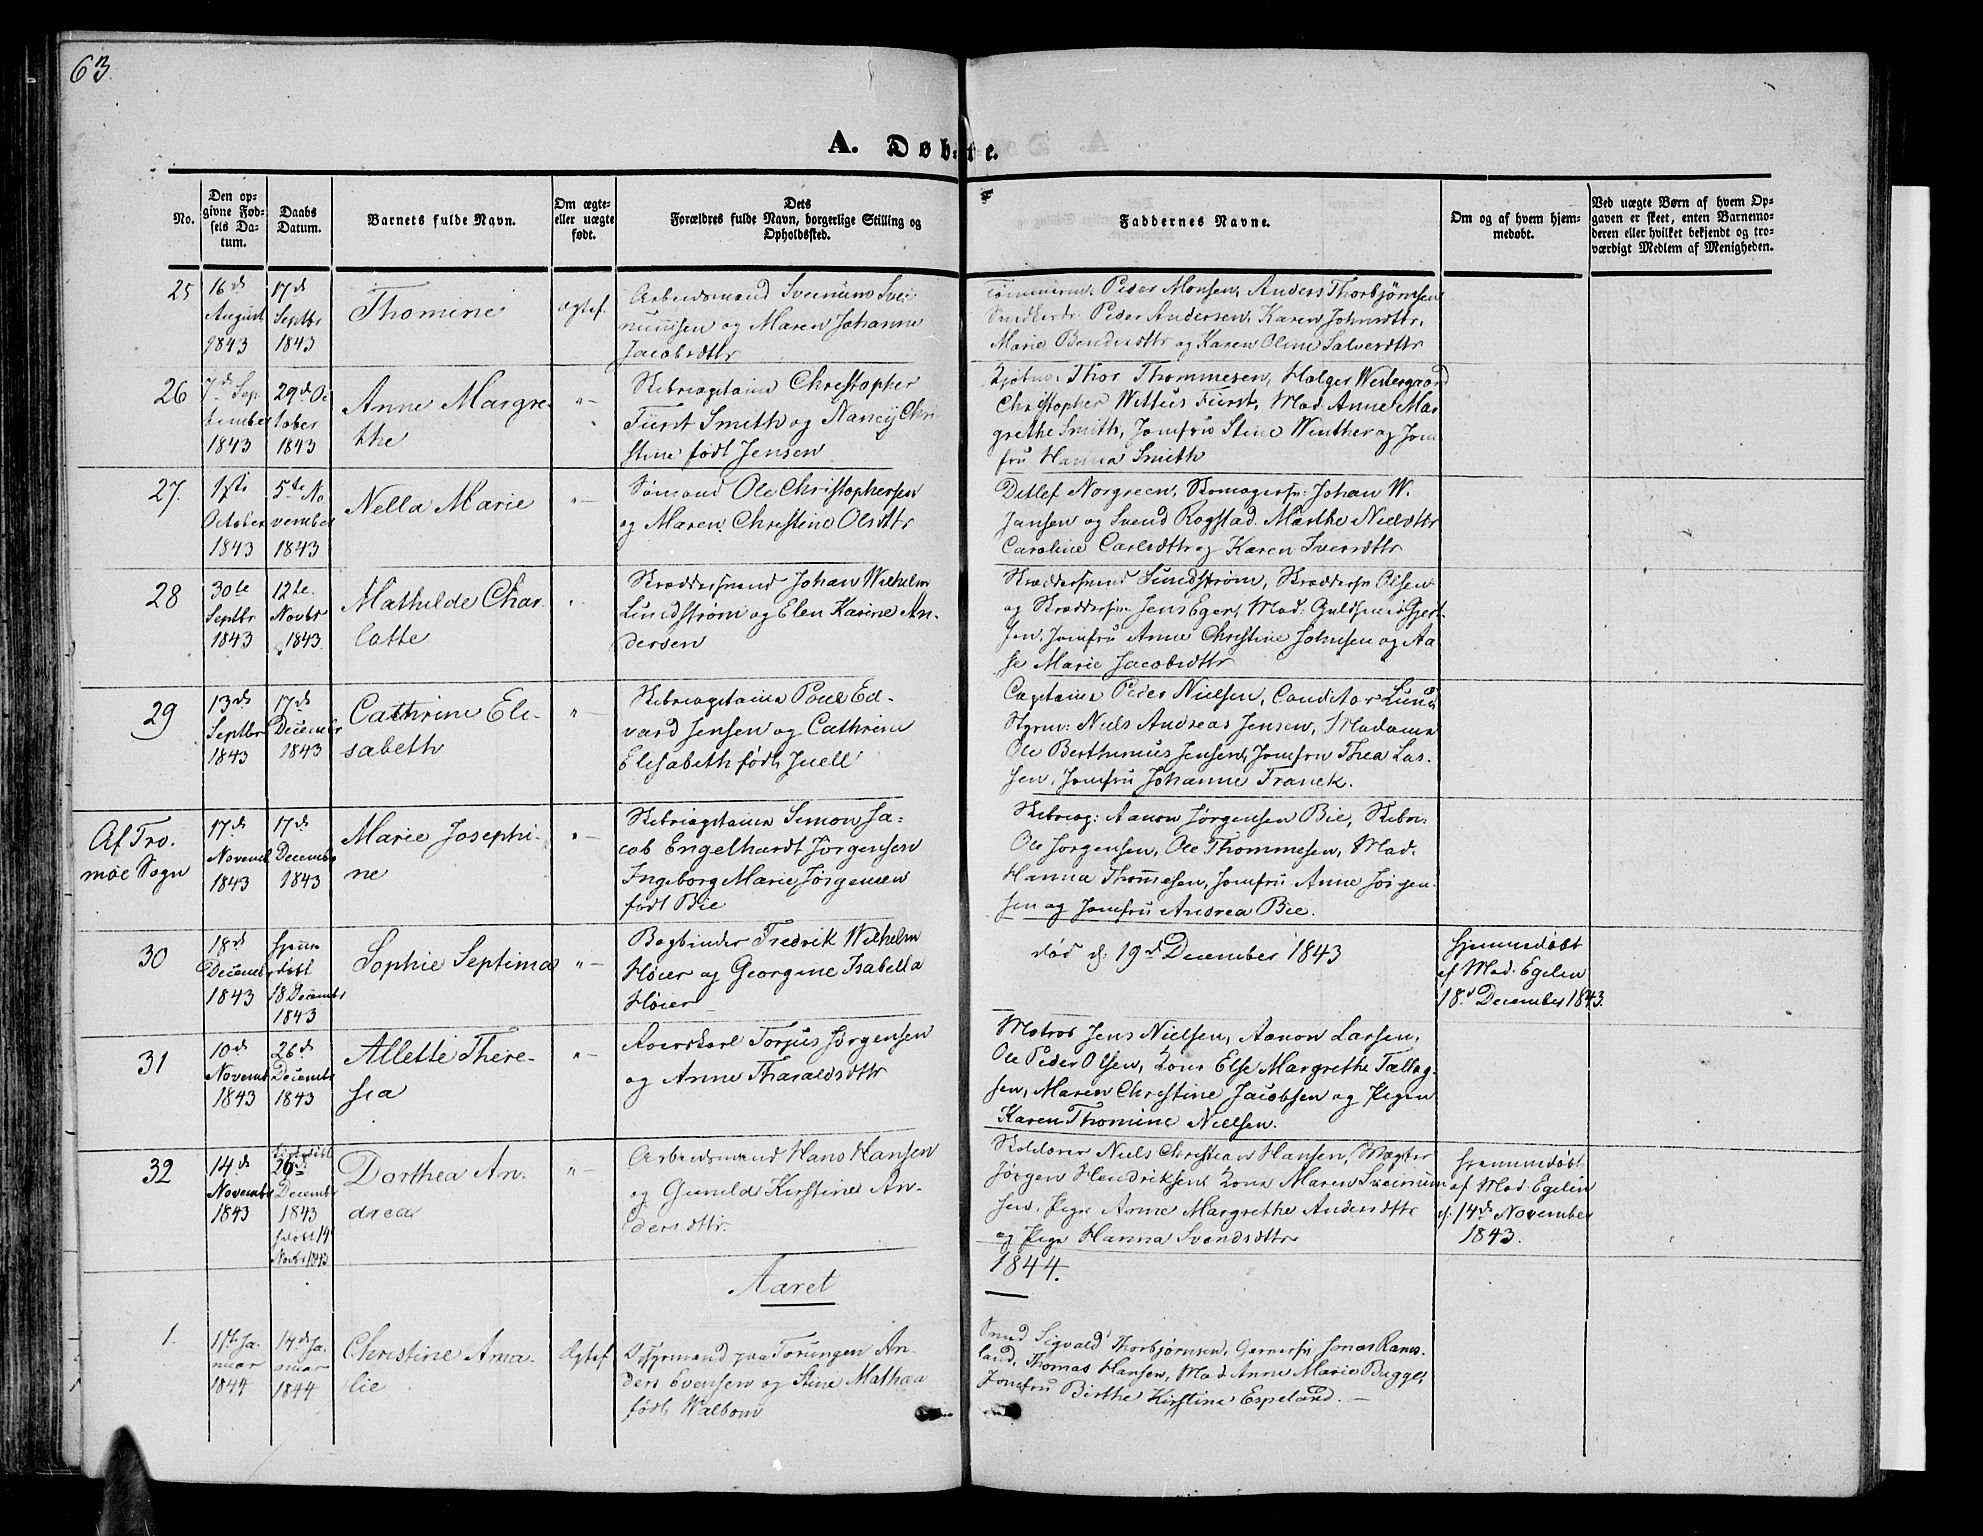 63.
A. Døbte.
No.
Den opgivne Fødsels Datum.
Daabs Datum.
Barnets fulde Navn.
Om ægte- eller uægte født.
Dets Forældres fulde Navn, borgerlige Stilling og Opholdssted.
Faddernes Navne.
Om og af hvem hjemmedøbt.
Ved uægte Børn af hvem Opgaven er skeet, enten Barnemoderen eller hvilket bekjendt og troværdigt Medlem af Menigheden.
25
16de August 1843
17de Septbr 1843
Thomine
Ægtef.
Arbeidsmand Sveinum Svei-
numsen og Maren Johanne
Jacobsdttr
Peder Monsen, Anders Thorbjørnsen
Peder Andersen, Karen Johnsdttr,
Marie Bendixdttr og Karen Oline Salvesdttr
26
7de September 1843
29de October 1843
Anne Margre-
the
"—
Skibscaptaine Christopher
Fürst Smith og Nancy Chri-
stine født Jensen
Kjøbm. Thor Thommesen, Holger Westergaard
Christopher Wittus Fürst, Mad Anne Mar-
grethe Smith, Jomfru Stine Winther og Jom-
fru Hanna Smith
27.
1ste October 1843
5te November 1843
Nella Marie
"—
Sømand Ole Christophersen
og Maren Christine Olsdttr
Ditlef Norgreen, Skomagersv: Johan W.
Jansen og Svend Rogstad. Marthe Nielsdttr
Caroline Carlsdttr og Karen Iversdttr
28
30te Septbr 1843
12te Novbr 1843
Mathilde Char-
lotte
"
Skræddersvend Johan Wilhelm
Lundstrøm og Elen Karine An-
dersen
Skræddersvend Lundstrøm, Skræddersv Olsen
og Skræddersv. Jens Eger, Mad: Guldsmed Gjert-
sen, Jomfru Anne Christine Johnsen og Aa-
se Marie Jacobsdttr
29
13de Septbr 1843
17de Decembr 1843
Cathrine Eli-
sabeth
"—
Skibscaptaine Poul Ed-
vard Jensen og Cathrine
Elisabeth født Juell
Captaine Peder Nielsen, Conditor Lund
Styrm: Niels Andreas Jensen, Madame
Ole Berthinius Jensen, Jomfru Thea Las-
sen, Jomfru Johanne Franck.
Af Tro.
møe Sogn
17de Novembr 1843
17de Decembr 1843
Marie Josephi-
ne
"—
Skibscaptaine Simon Ja-
cob Engelhardt Jørgensen
Ingeborg Marie Jørgensen
født Bie
Skibscap: Aanon Jørgensen Bie, Skibs:
Ole Jørgensen, Ole Thommesen, Mad.
Hanna Thommesen, Jomfru Anne Jørgen-
sen og Jomfru Andrea Bie.
30
18de Decembr 1843
hjemmedøbt 18 Decembr 1843
Sophie Septima
"—
Bogbinder Fredrik Wilhelm
Høier og Georgine Isabella
Høier
død d: 19de December 1843
hjemmedøbt
af Mad. Egelin
18d December 1843.
31
10de Novembr 1843
26de Decembr 1843
Allette There-
sia
"—
Torjus Jørgensen
og Anne Tharaldsdttr
Matros Jens Nielsen, Aanon Larsen,
Ole Peder Olsen, Kone Else Margrethe
sen, Maren Christine Jacobsen og Pigen
Karen Thomine Nielsen.
32
14de Novembr 1843
26de December 1843
14 Novbr 1843
Dorthea An-
drea
"—
Arbeidsmand Hans Hansen
og Gunild Kirstine An-
dersdttr.
Niels Christian Hansen, Vægter
Jørgen Hendriksen, Kone Maren Sveinum-
sen, Pige Anne Margrethe Andersdttr
og Pige Hanna Svendsdttr
hjemmedøbt
af Mad. Egelin
d. 14de November
1843.
Aaret 1844.
1.
Januar 1844
14de Januar 1844
Christine Ama-
lie
Ægtef.
paa Torungen An-
ders Evensen og Stine Mathea
født Walbom
Smed Sigvald Thorbjørnsen, Garversv Jonas Rams-
land, Thomas Hansen, Mad Anne Marie Bugge,
Jomfru Birthe Kirstine Espeland.—